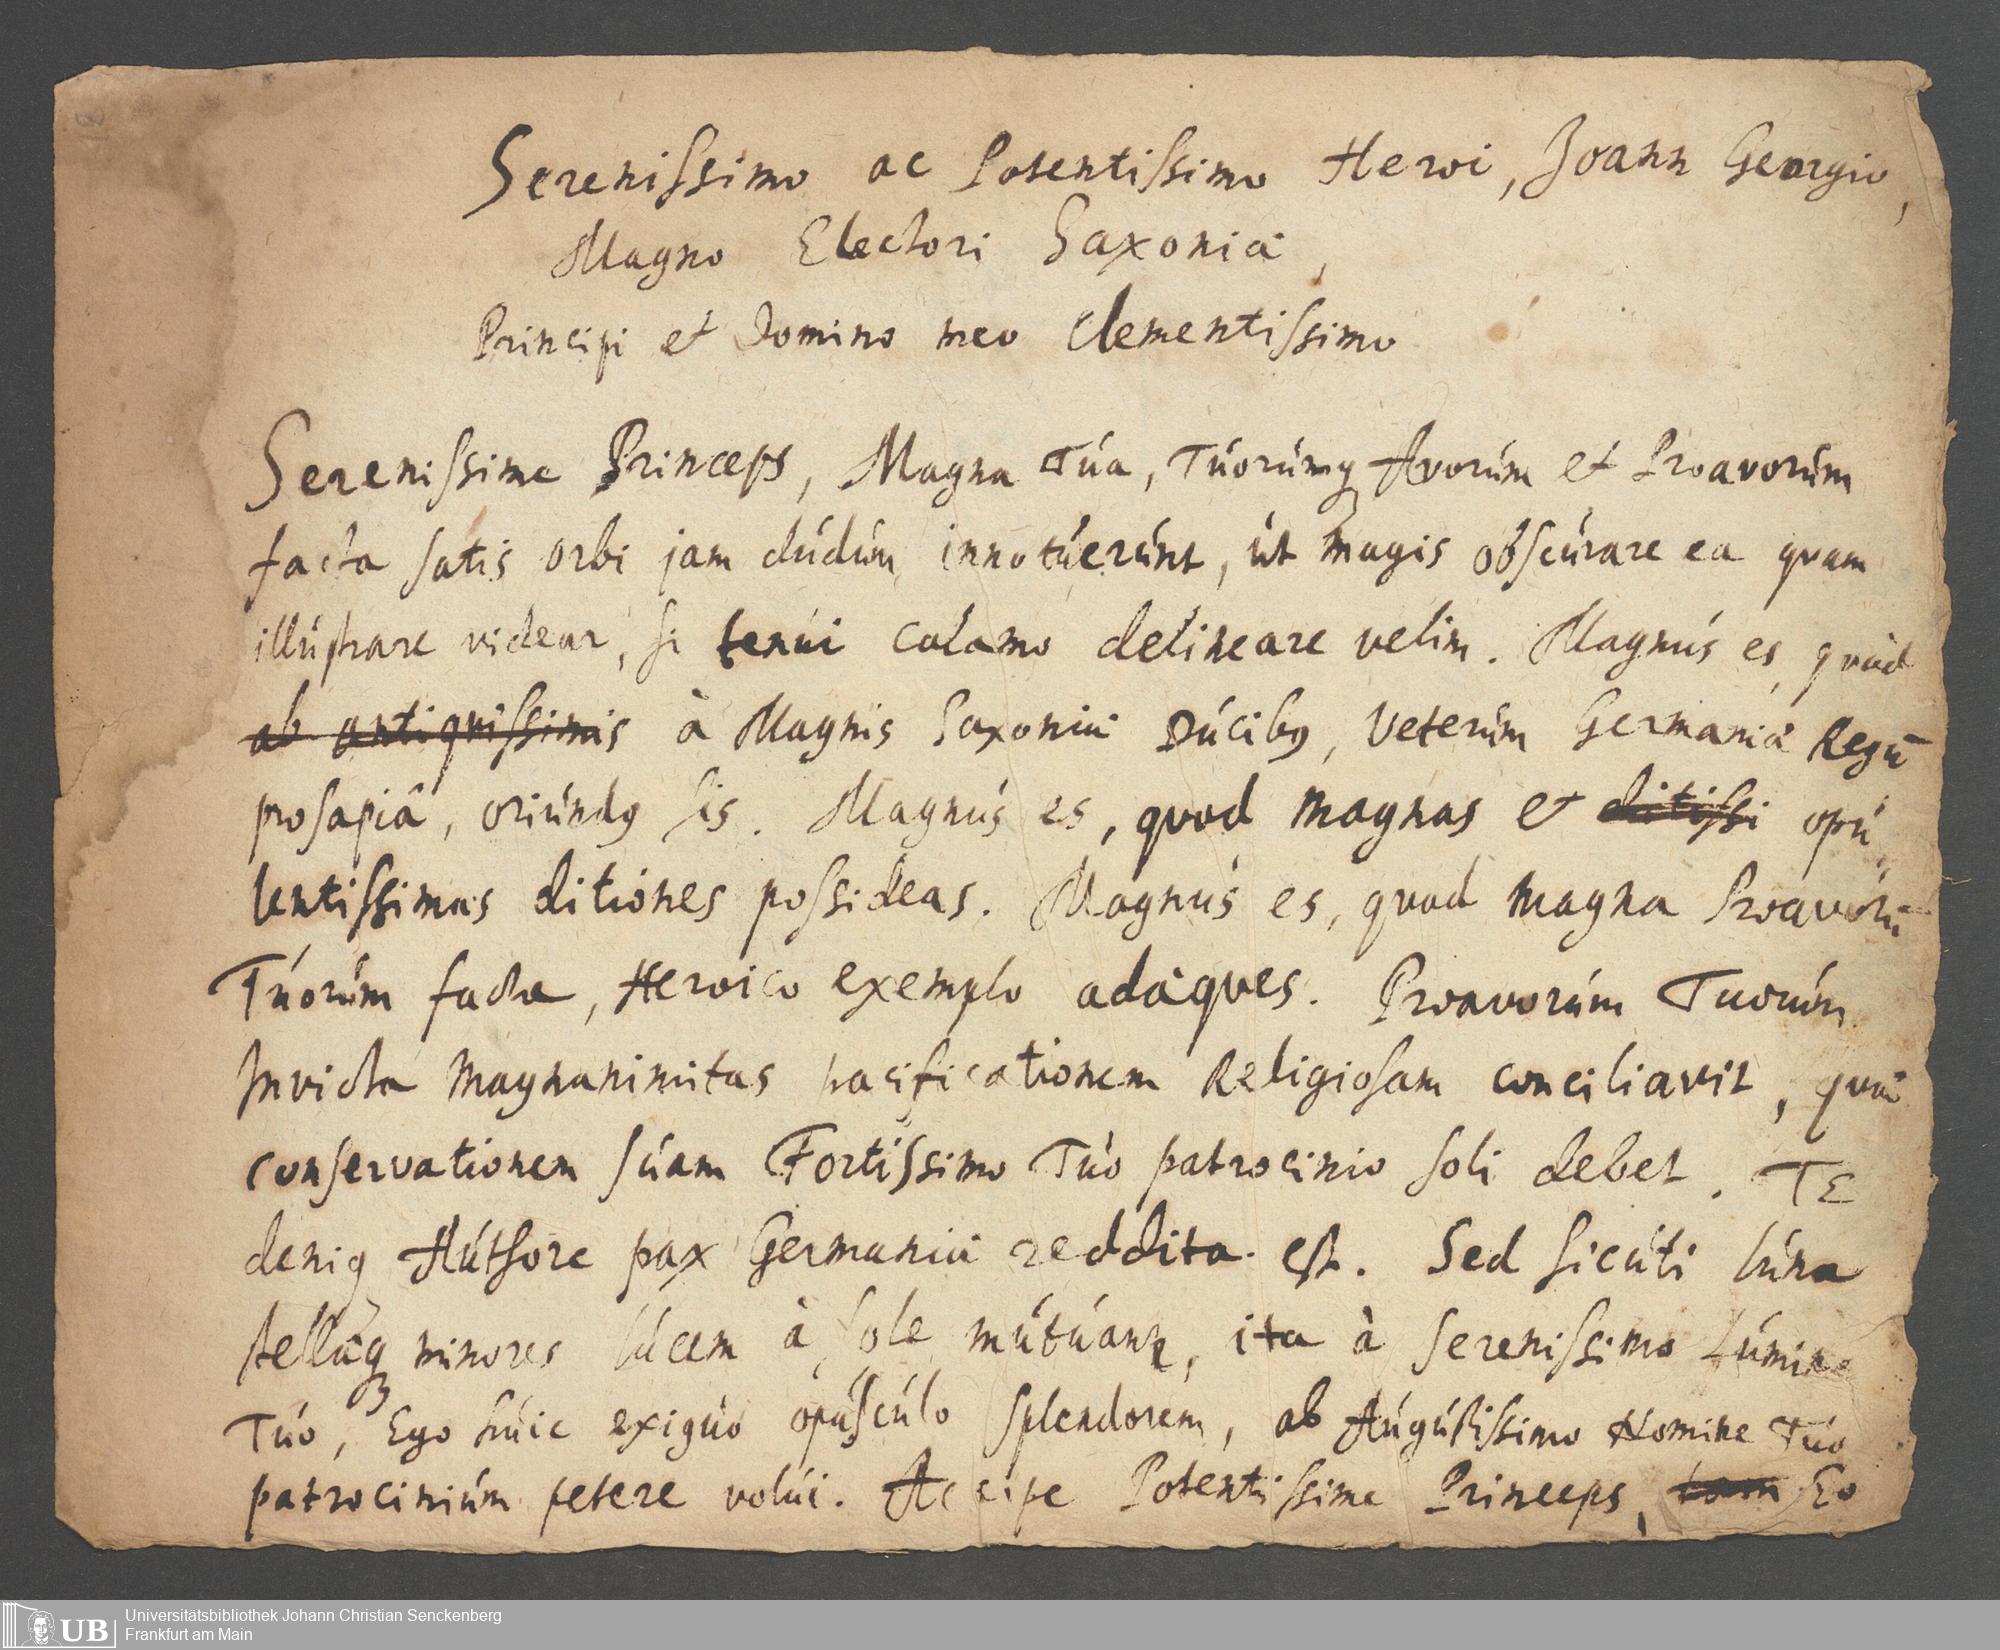 Serenissimo ac Potentissimo Heroi, Joann Georgio,
Magno Electori Saxoniæ,
Principi et Domino meo Clementissimo
Serenissime Princeps, Magna Túa, Túorúmq Avorúm et Proavorúm
facta satis orbi jam dúdúm innotúerúnt, út magis obscúrare ea quam
illústrare videar, si tenúi calamo delineare velim. Magnús es, quòd
ab antiquissimis à Magnis Saxoniæ Dúcibꝰ, Veterúm Germaniæ Regū
prosapiâ, oriúndꝰ sis. Magnús es, quod magnas et ditissi opú
lentissimas ditiones possideas. Magnús es, quod magna Proavorū
Túorúm facta, Heroico exemplo adæques. Proavorúm Tuorúm
Invicta Magnanimitas pacificationem Religiosam conciliavit, quæ
conservationem súam Fortissimo Túo patrocinio soli debet. TE
deniq Aúthore pax Germaniæ reddita est. Sed sicúti lúna
stellæq minores lúcem à sole mútúantꝛ, ita à serenissimo Lúmine
Túo, Ego húic exigúo opúscúlo splendorem, ab Aúgústissimo Nomine Túo
patrociniúm petere volúi. Accipe Potentissime Princeps, tam Eo
Universitätsbibliothek Johann Christian Senckenberg
Frankfurt am Main
UB